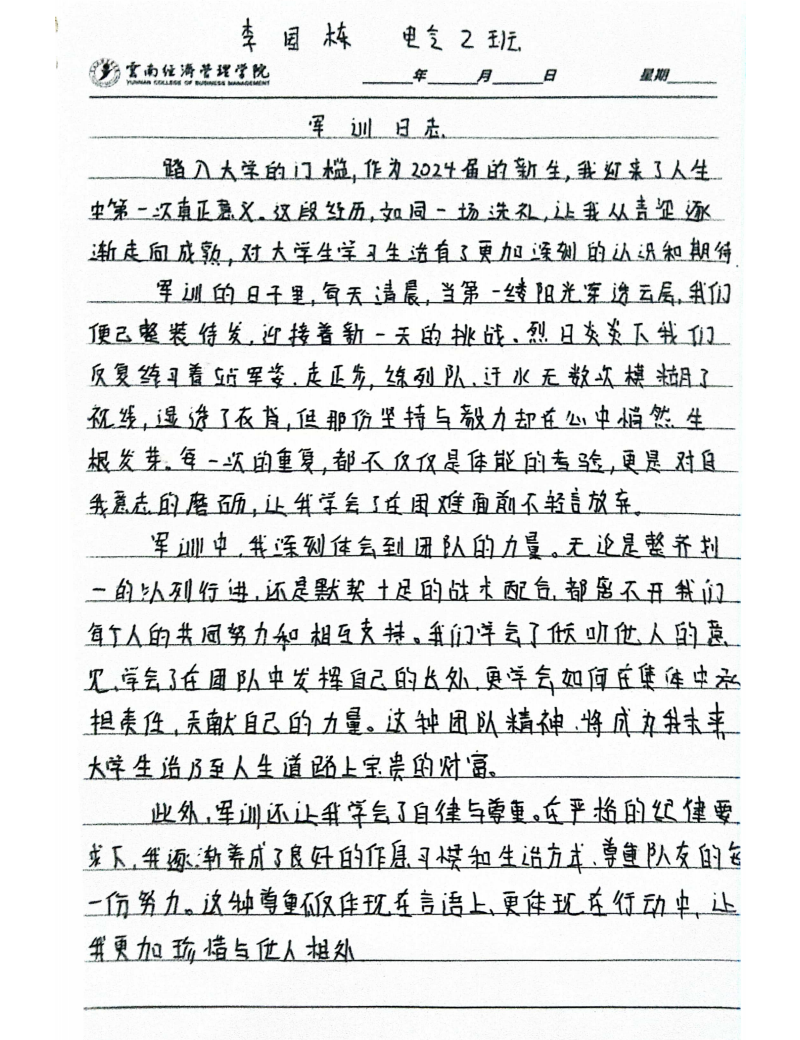 李国栋 电气2班
雲南经濟管理学院
YUNNAN COLLEGE OF BUSINESS MANAGEMENT
年 月 日 星期
军训日志
踏入大学的门槛,作为2024届的新生,我迎来了人生
中第一次真正意义。这段经历,如同一场洗礼,让我从青涩逐
渐走向成熟,对大学生学习生活有了更加深刻的认识和期待.
军训的日子里,每天清晨,当第一缕阳光穿透云层,我们
便已整装待发,迎接着新一天的挑战。烈日炎炎下我们
反复练习着站军姿.走正步,练列队.汗水无数次模糊了
视线,湿透了衣背,但那份坚持与毅力却在心中悄然生
根发芽。每一次的重复,都不仅仅是体能的考验,更是对自
我意志的磨砺,让我学会了在困难面前不轻言放弃。
军训中,我深刻体会到团队的力量。无论是整齐划
一的队列行进,还是默契十足的战术配合,都离不开我们
每个人的共同努力和相互支持。我们学会了倾听他人的意
见,学会了在团队中发挥自己的长处,更学会如何在集体中承
担责任,贡献自己的力量。这种团队精神,将成为我未来
大学生活乃至人生道路上宝贵的财富。
此外,军训还让我学会了自律与尊重。在严格的纪律要
求下,我逐渐养成了良好的作息习惯和生活方式,尊重队友的每
一份努力。这种尊重不仅体现在言语上,更体现在行动中,让
我更加珍惜与他人相处